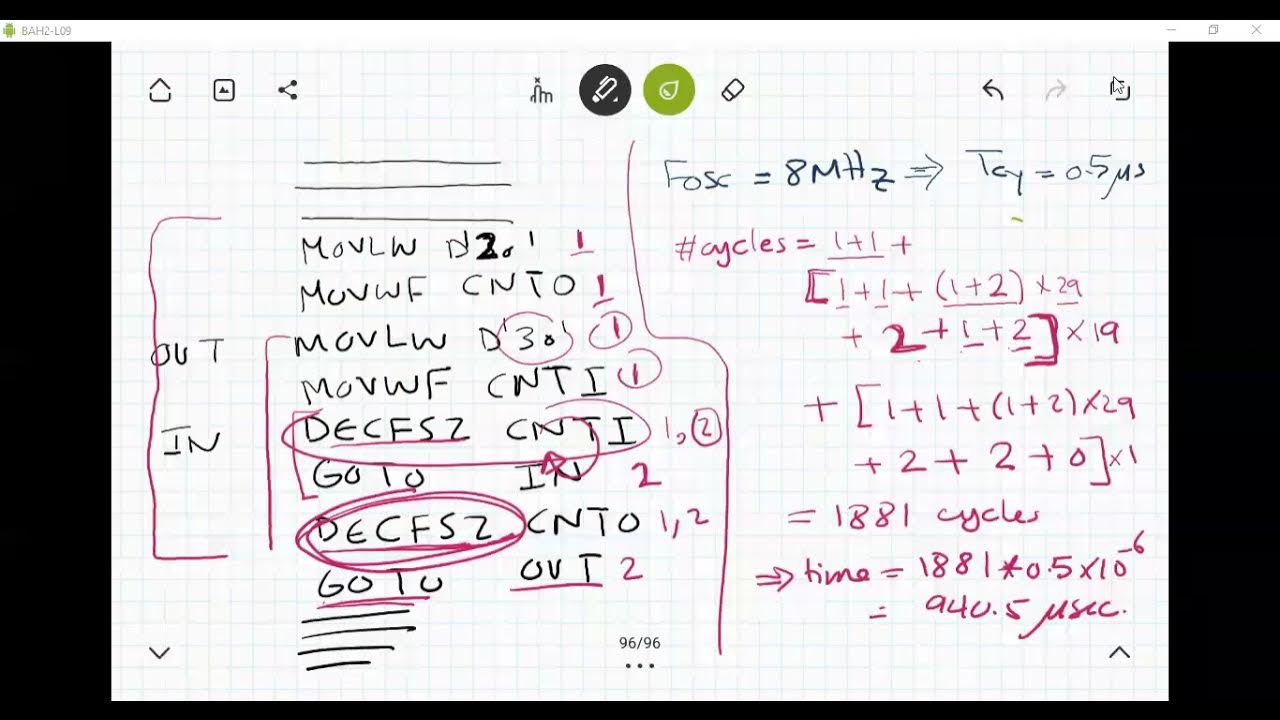 BAH2-L09
MOVLW D'20' 1
MOVWF CNTO 1
OUT MOVLW D'30' 1
MOVWF CNTI 1
IN DECFSZ CNTI 1,2
GOTO IN 2
DECFSZ CNTO 1,2
GOTO OUT 2
96/96
Fosc = 8MHz ⇒ Tcy = 0.5μs
#cycles = 1+1 +
[1+1+(1+2)×29
+ 2+1+2]×19
+ [1+1+(1+2)×29
+ 2 + 2 + 0]×1
= 1881 cycles
⇒ time = 1881*0.5×10⁻⁶
= 940.5 μsec.